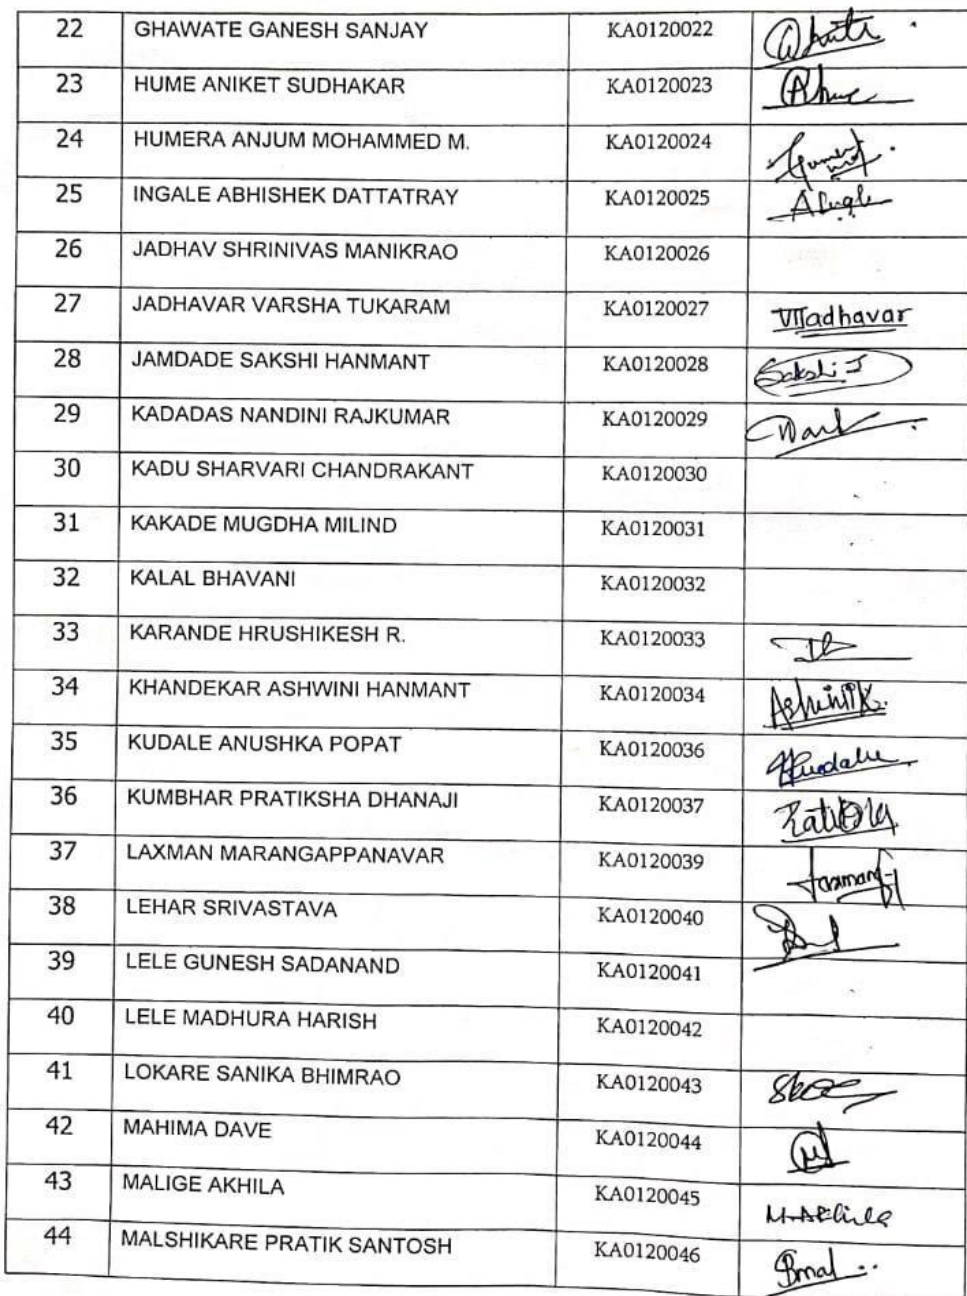 22 GHAWATE GANESH SANJAY KA0120022
23 HUME ANIKET SUDHAKAR KA0120023
24 HUMERA ANJUM MOHAMMED M. KA0120024
25 INGALE ABHISHEK DATTATRAY KA0120025
26 JADHAV SHRINIVAS MANIKRAO KA0120026
27 JADHAVAR VARSHA TUKARAM KA0120027 VTJadhavar
28 JAMDADE SAKSHI HANMANT KA0120028 Sakshi J
29 KADADAS NANDINI RAJKUMAR KA0120029
30 KADU SHARVARI CHANDRAKANT KA0120030
31 KAKADE MUGDHA MILIND KA0120031
32 KALAL BHAVANI KA0120032
33 KARANDE HRUSHIKESH R. KA0120033
34 KHANDEKAR ASHWINI HANMANT KA0120034
35 KUDALE ANUSHKA POPAT KA0120036
36 KUMBHAR PRATIKSHA DHANAJI KA0120037
37 LAXMAN MARANGAPPANAVAR KA0120039
38 LEHAR SRIVASTAVA KA0120040
39 LELE GUNESH SADANAND KA0120041
40 LELE MADHURA HARISH KA0120042
41 LOKARE SANIKA BHIMRAO KA0120043
42 MAHIMA DAVE KA0120044
43 MALIGE AKHILA KA0120045 M.Akhila
44 MALSHIKARE PRATIK SANTOSH KA0120046